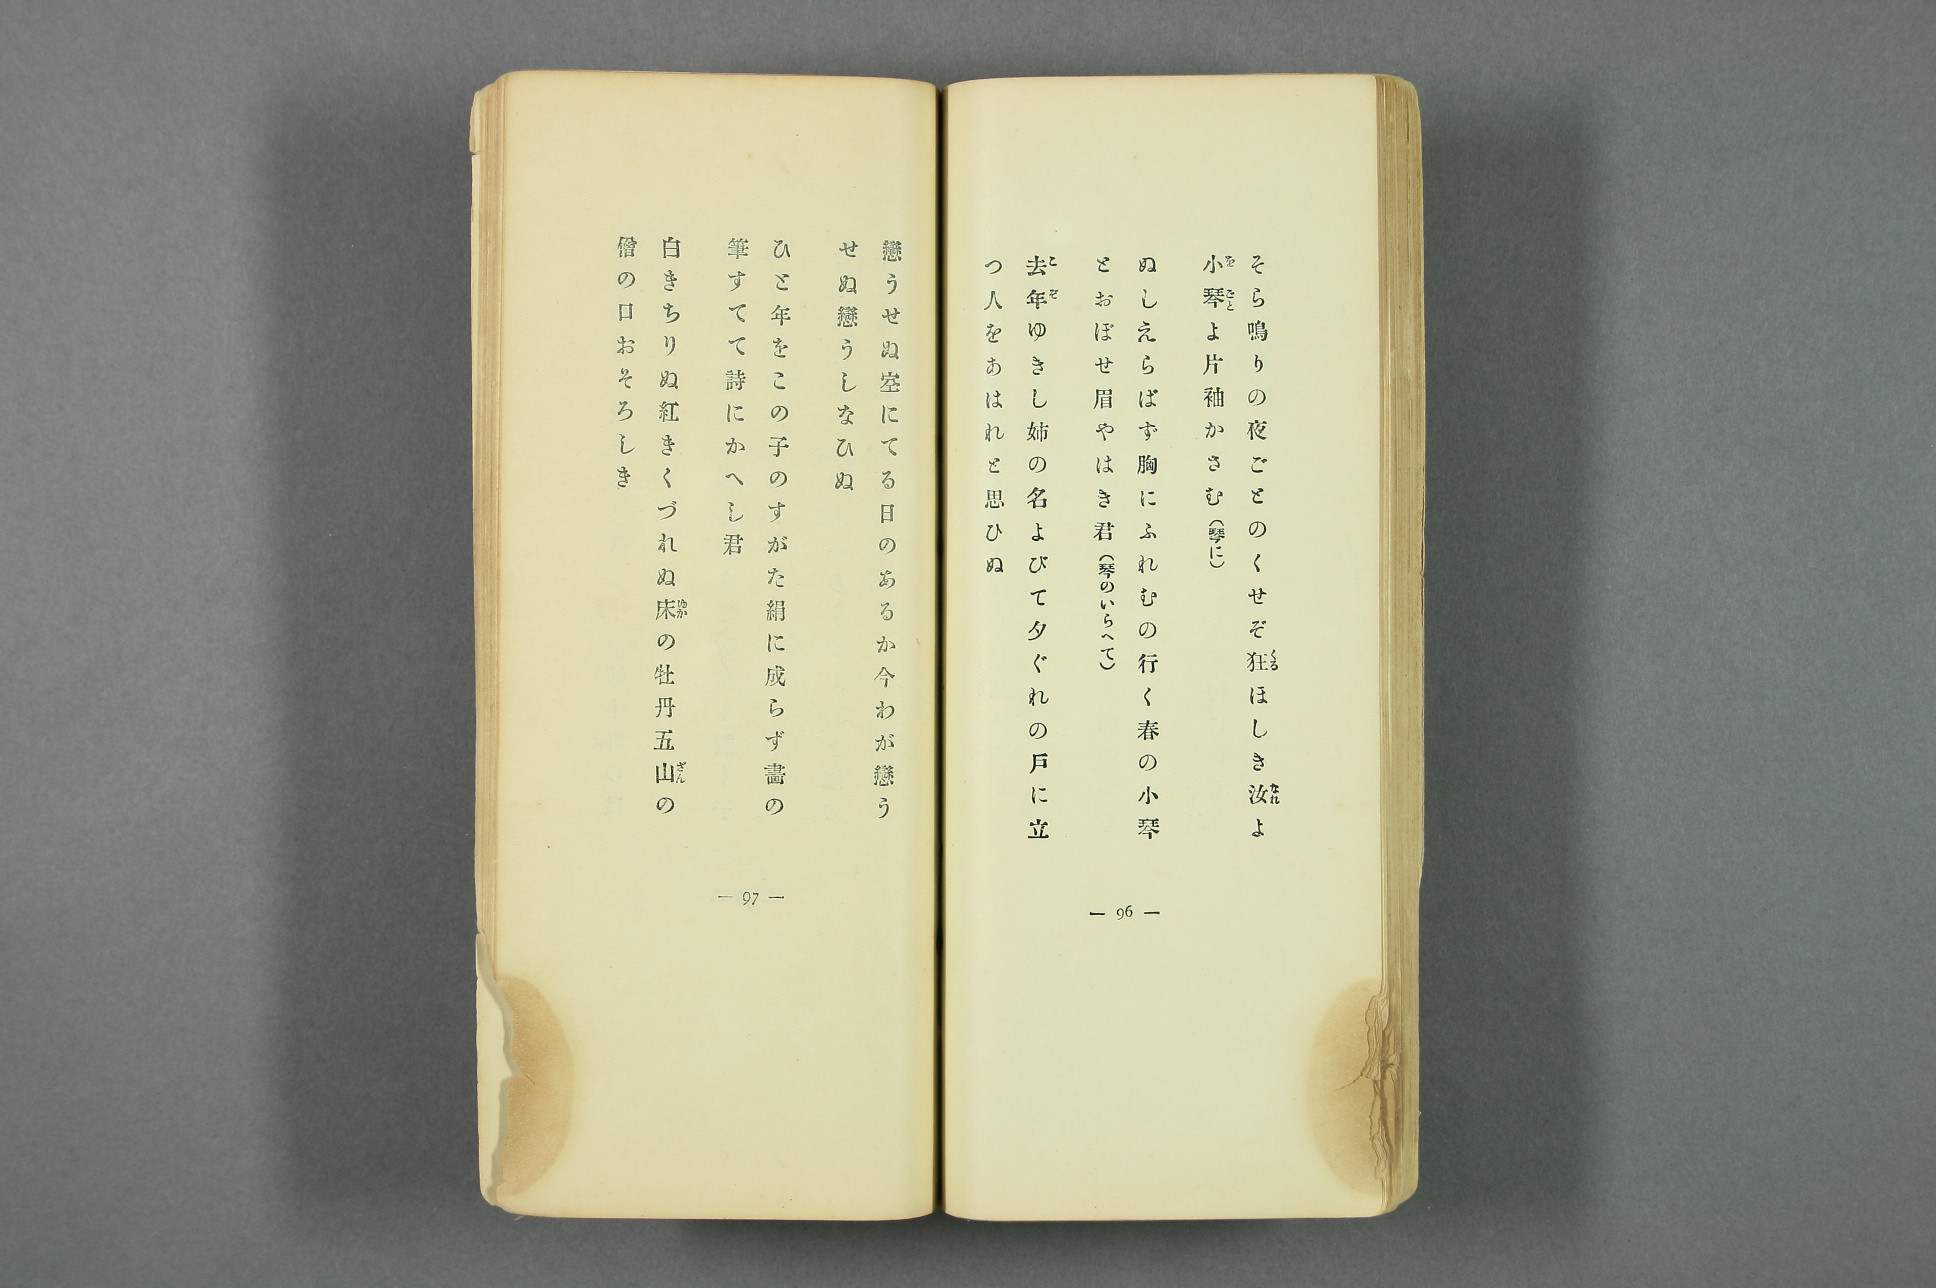 そら鳴りの夜ごとのくせぞ狂ほしき汝よ
小琴よ片袖かさむ(琴に)
ぬしえらばず胸にふれむの行く春の小琴
とおぼせ眉やはき君(琴のいらへて)
去年ゆきし姉の名よびて夕ぐれの戸に立
つ人をあはれと思ひぬ
— 96 —
戀うせぬ空にてる日のあるか今わが戀う
せぬ戀うしなひぬ
ひと年をこの子のすがた絹に成らず畵の
筆すてて詩にかへし君
白きちりぬ紅きくづれぬ床の牡丹五山の
僧の口おそろしき
— 97 —